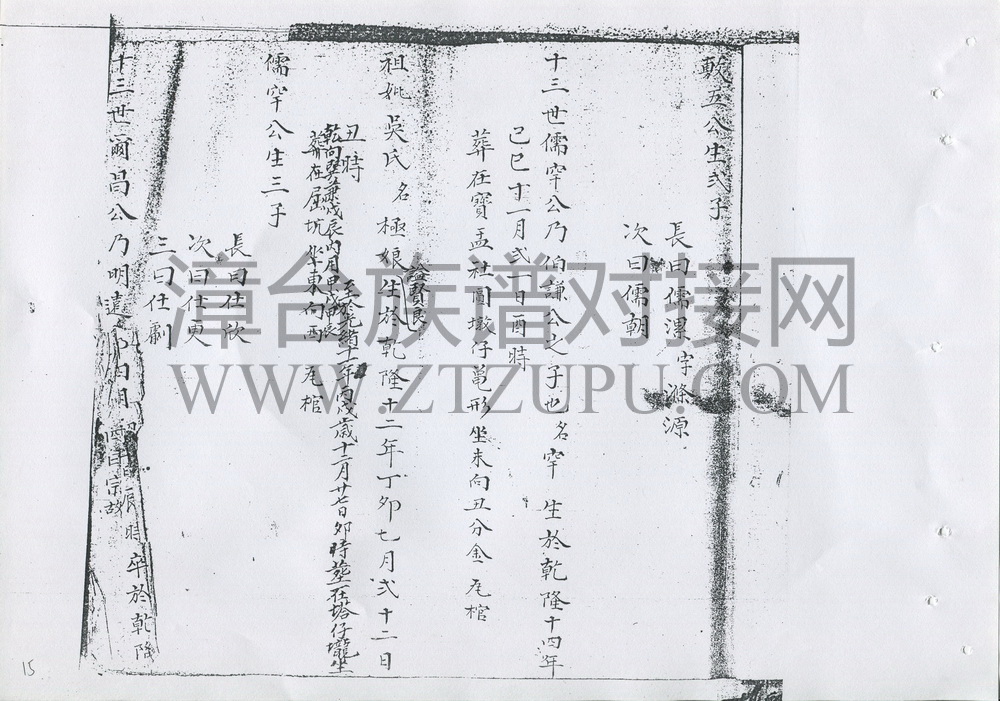 乾五公生弍子
長曰儒漯字滌源
次曰儒朝
十三世儒罕公乃伯謙公之子也名罕生於乾隆十四年
己巳十一月弍十日酉時
葬在寶孟社圓墩仔黽形坐未向丑分金瓦棺
諡賢良
祖妣吳氏名極娘生於乾隆十二年丁卯七月弍十二日
丑時
葬在屈坑坐東向西瓦棺
至光緒十一年丙戌歲十二月廿七日卯時葬在塔仔壠坐
乾向巽兼戌辰
儒罕公生三子
長曰仕欣
次曰仕更
三曰仕劇
十三世爾昌公乃明達
辰時卒於乾隆
漳台族谱对接网
WWW.ZTZUPU.COM
15